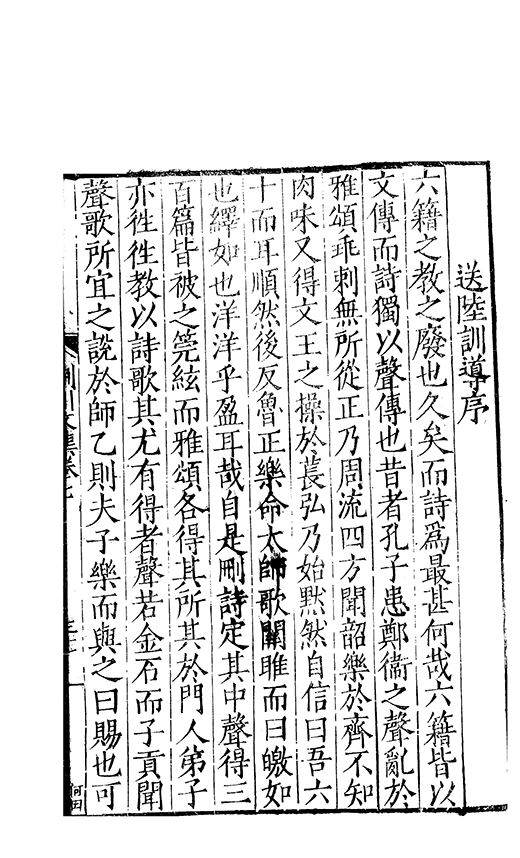 送陸訓導序
六籍之教之廢也久矣而詩爲最甚何哉六籍皆以
文傳而詩獨以聲傳也昔者孔子患鄭衞之聲亂於
雅頌乖剌無所從正乃周流四方聞韶樂於齊不知
肉味又得文王之操於萇弘乃始黙然自信曰吾六
十而耳順然後反魯正樂命太師歌關雎而曰皦如
也繹如也洋洋乎盈耳哉自是刪詩定其中聲得三
百篇皆被之筦絃而雅頌各得其所其於門人弟子
亦徃徃教以詩歌其尤有得者聲若金石而子貢聞
聲歌所宜之說於師乙則夫子樂而與之曰賜也可
荆川文集卷七
何田